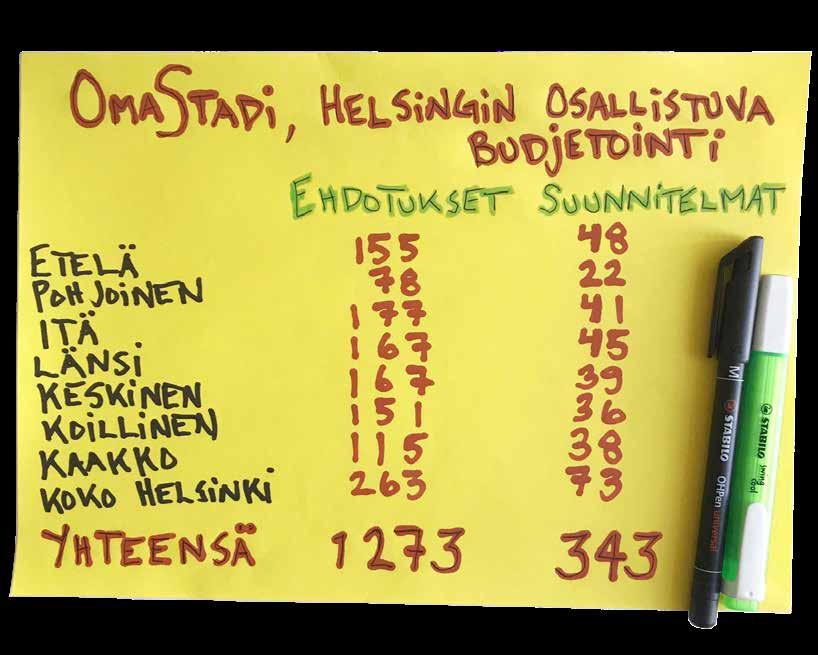 OMASTADI, HELSINGIN OSALLISTUVA
BUDJETOINTI
EHDOTUKSET SUUNNITELMAT
ETELÄ 155 48
POHJOINEN 78 22
ITÄ 177 41
LÄNSI 167 45
KESKINEN 167 39
KOILLINEN 151 36
KAAKKO 115 38
KOKO HELSINKI 263 73
YHTEENSÄ 1273 343
M STABILO OHPen universal
STABILO swing cool